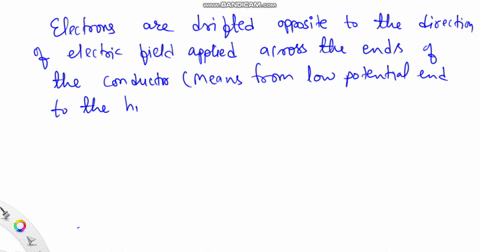 WWW.BANDICAM.COM
Electrons are drifted opposite to the direction
of electric field applied across the ends of
the conductor (means from low potential end
to the h